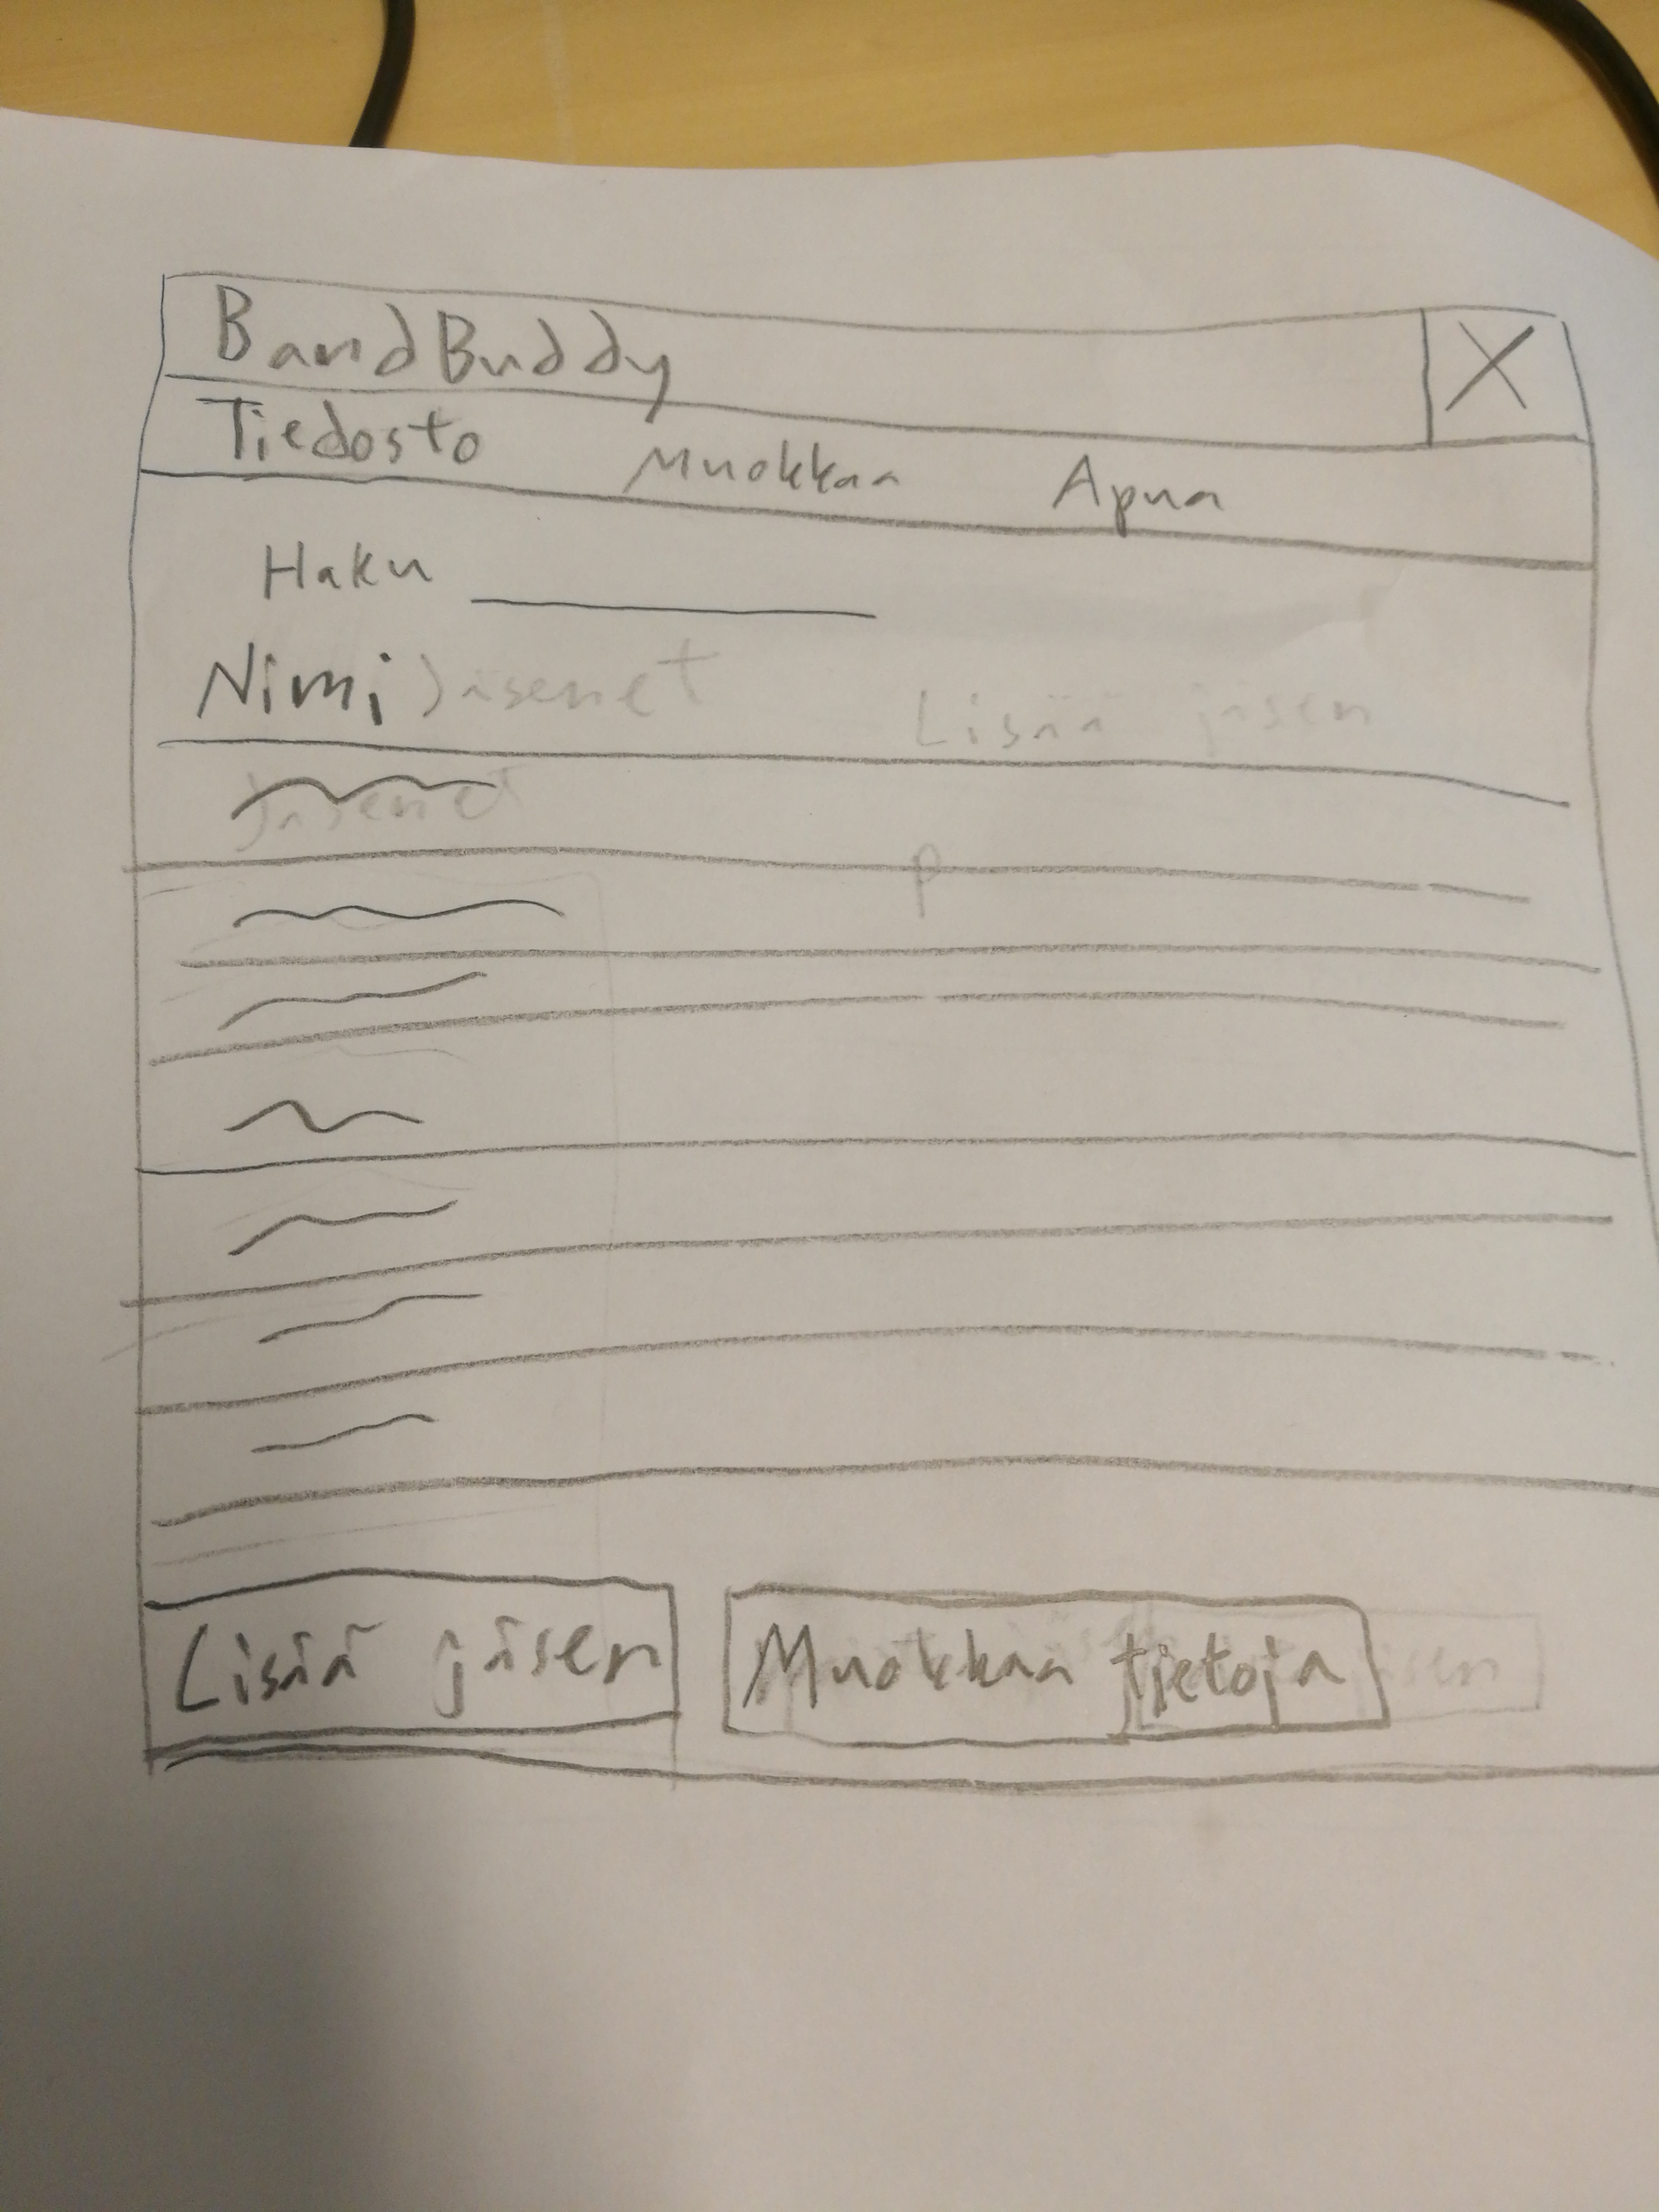 BandBuddy X
Tiedosto Muokkaa Apua
Haku
Nimi Jäsenet Lisää jäsen
Jäsenet
p
Lisää jäsen Muokkaa tietoja